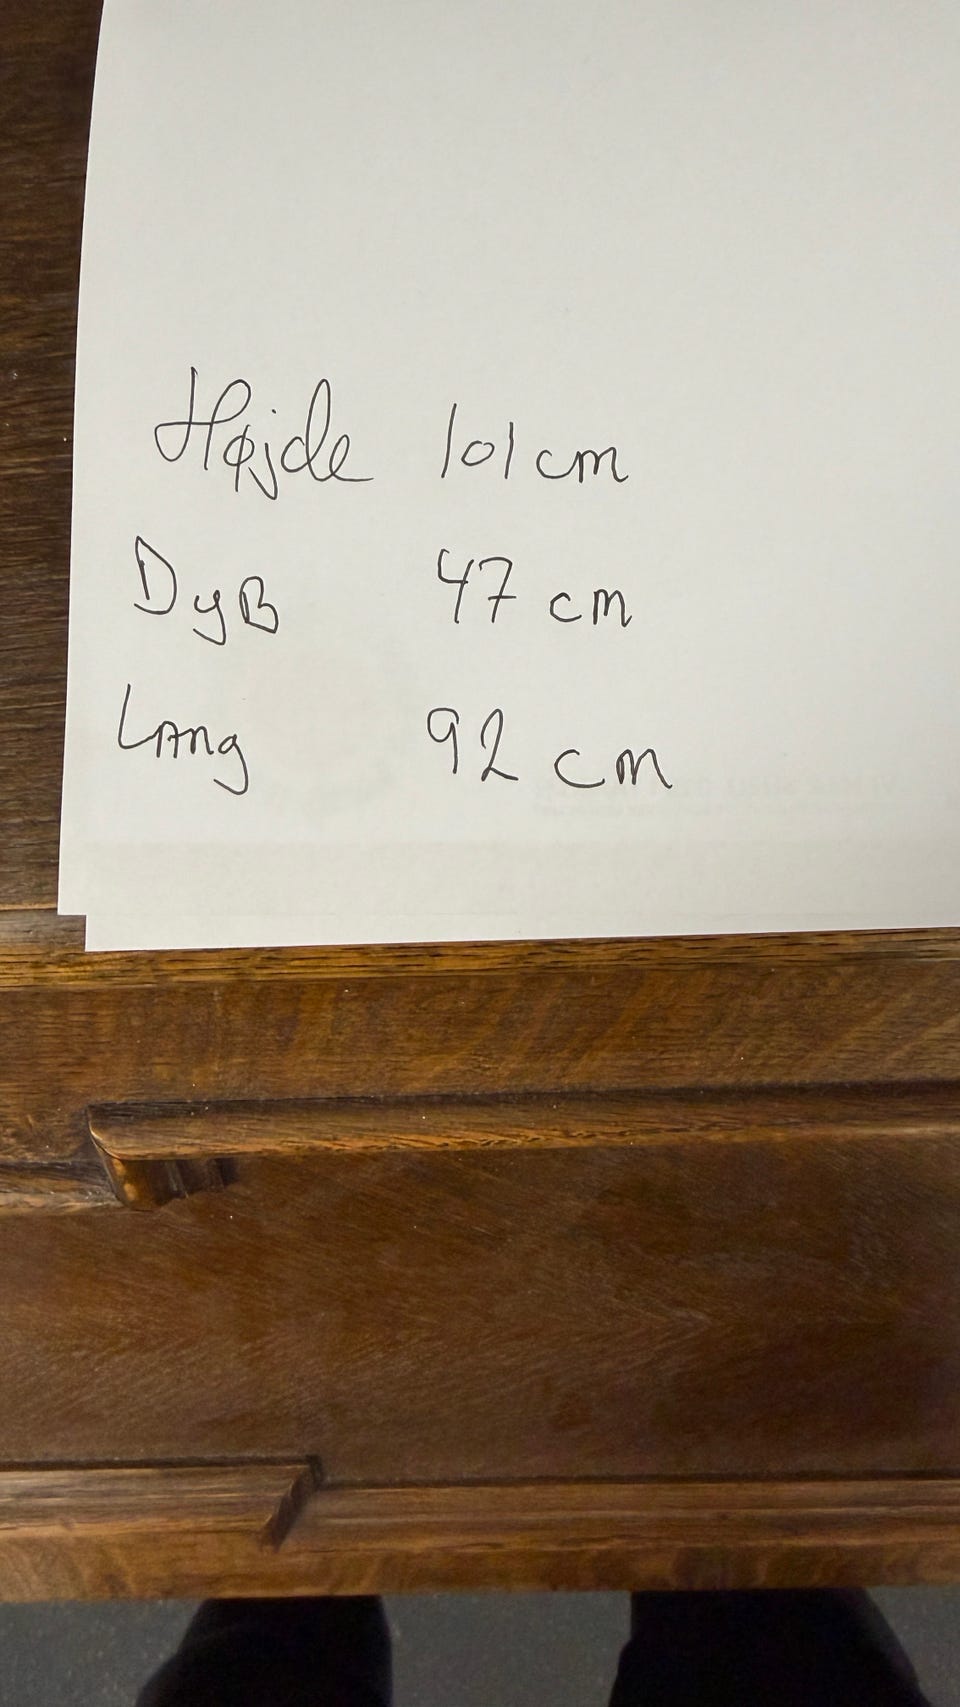 Højde 101 cm
DyB 47 cm
Lang 92 cm